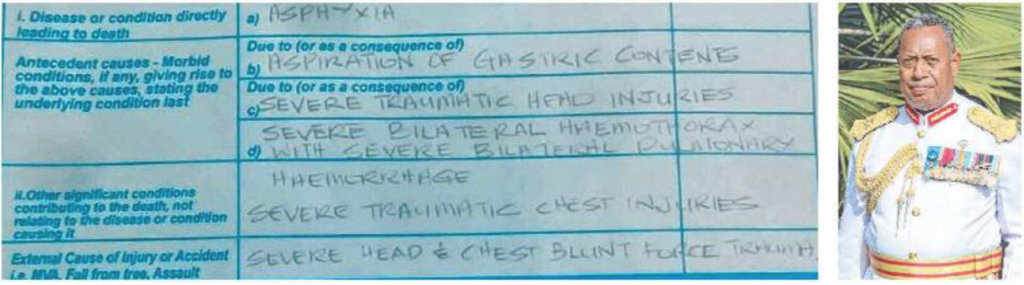 i. Disease or condition directly
leading to death
a) ASPHYXIA
Antecedent causes - Morbid
conditions, if any, giving rise to
the above causes, stating the
underlying condition last
Due to (or as a consequence of)
b) ASPIRATION OF GASTRIC CONTENTS
Due to (or as a consequence of)
c) SEVERE TRAUMATIC HEAD INJURIES
SEVERE BILATERAL HAEMOTHORAX
d) WITH SEVERE BILATERAL PULMONARY
HAEMORRHAGE
ii. Other significant conditions
contributing to the death, not
relating to the disease or condition
causing it
SEVERE TRAUMATIC CHEST INJURIES
External Cause of Injury or Accident
i.e. MVA, Fall from tree, Assault
SEVERE HEAD & CHEST BLUNT FORCE TRAUMA